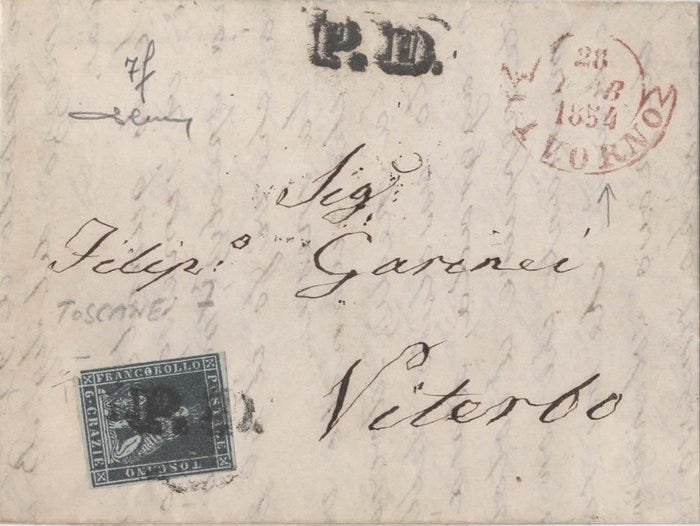 P. D.
7f
28
1854
Sigr
Filipo Garinei
Viterbo
TOSCANE
FRANCOBOLLO
POSTALE
TOSCANO
6·CRAZIE
P. D.